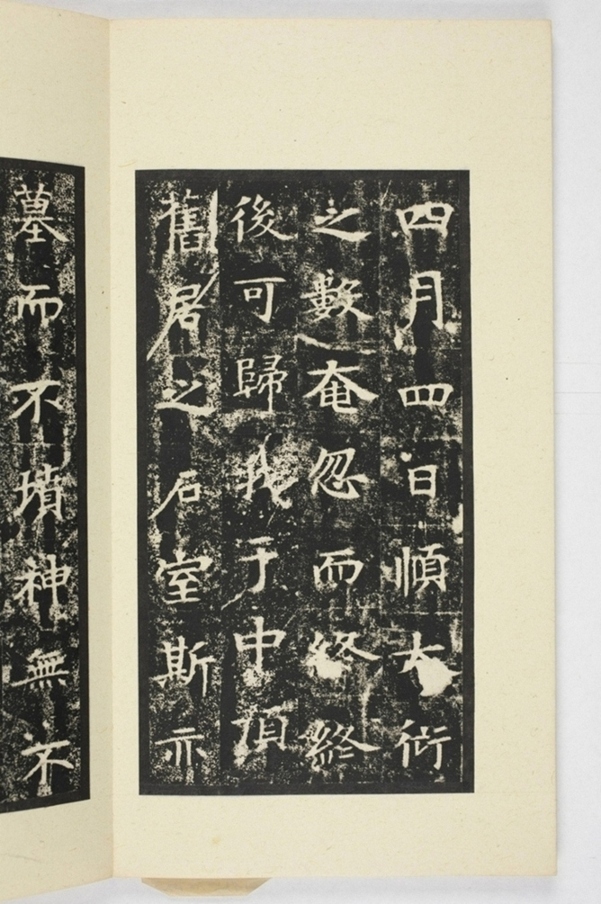 四月四日順大衍
之數奄忽而終終
後可歸我于中頂
舊居之石室斯亦
墓而不墳神無不